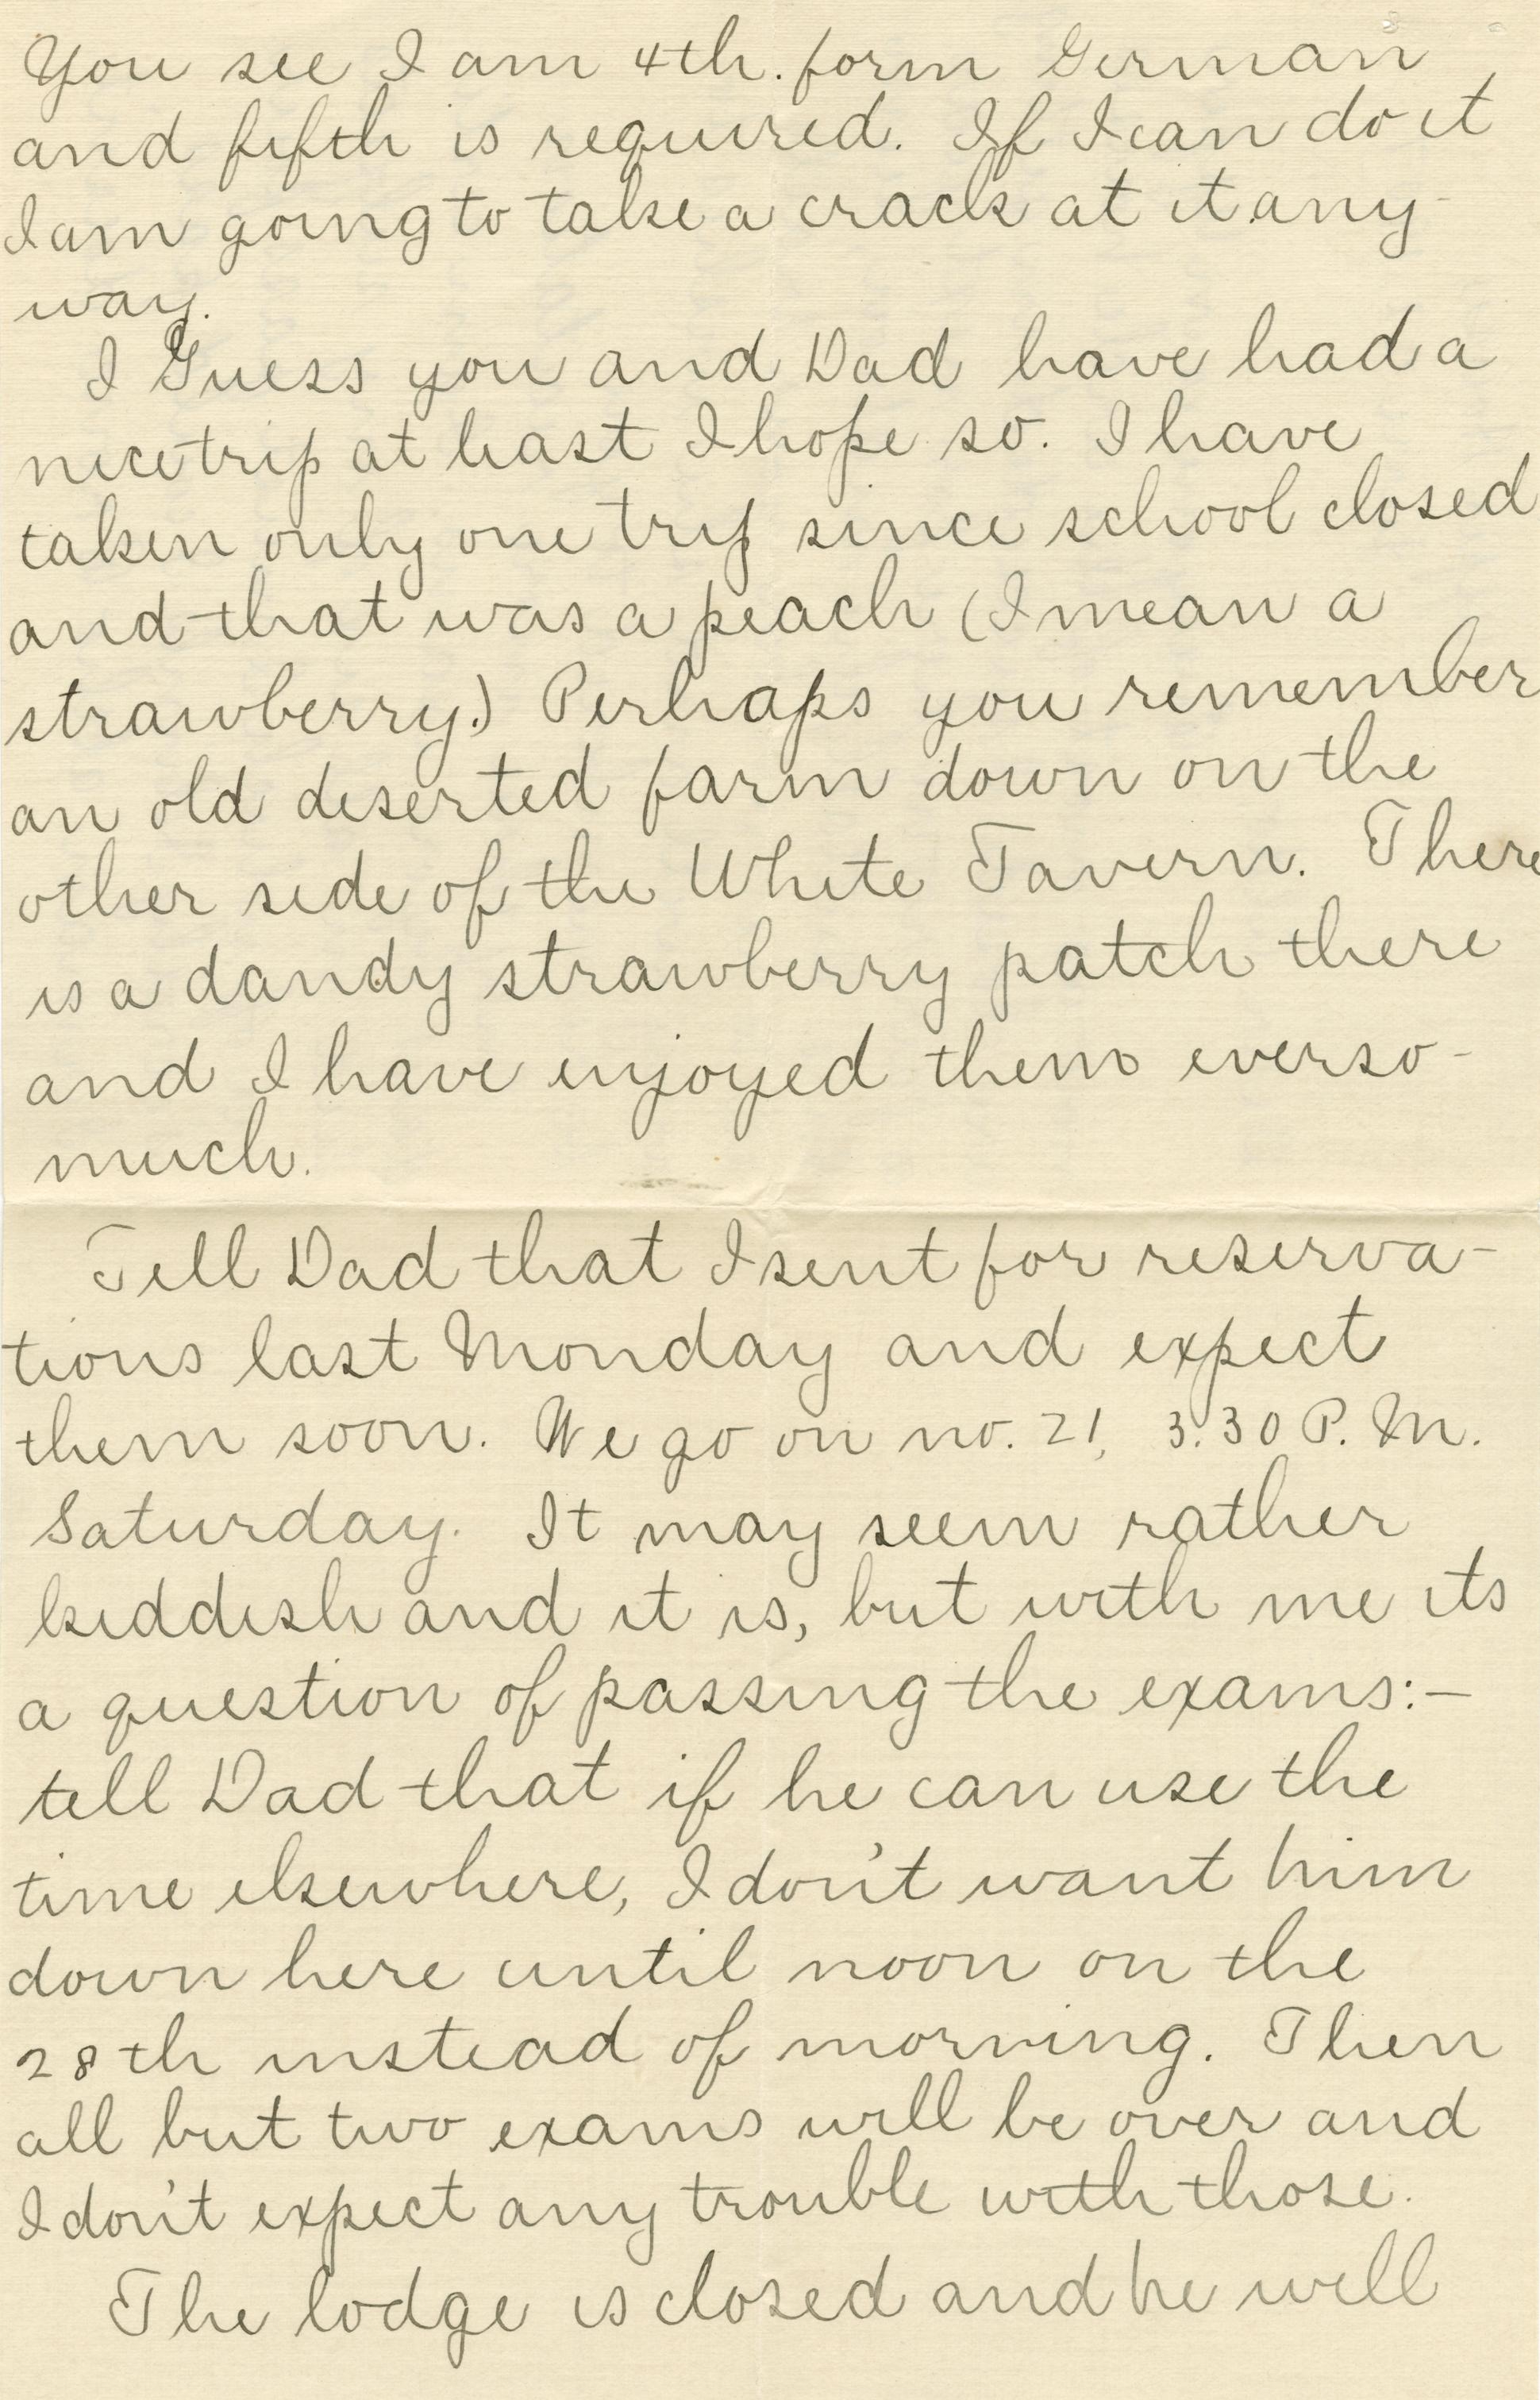 You see I am 4th. form German,
and fifth is required. If I can do it
I am going to take a crack at it any-
way.
I Guess you and Dad have had a
nice trip at least I hope so. I have
taken only one trip since school closed
and that was a peach (I mean a
strawberry.) Perhaps you remember
an old deserted farm down on the
other side of the White Tavern. There
is a dandy strawberry patch there
and I have enjoyed them ever so-
much.
Tell Dad that I sent for reserva-
tions last Monday and expect
them soon. We go on no. 21, 3.30 P. M.
Saturday. It may seem rather
kiddish and it is, but with me its
a question of passing the exams:—
tell Dad that if he can use the
time elsewhere, I don't want him
down here until noon on the
28th instead of morning. Then
all but two exams will be over and
I don't expect any trouble with those.
The lodge is closed and he will